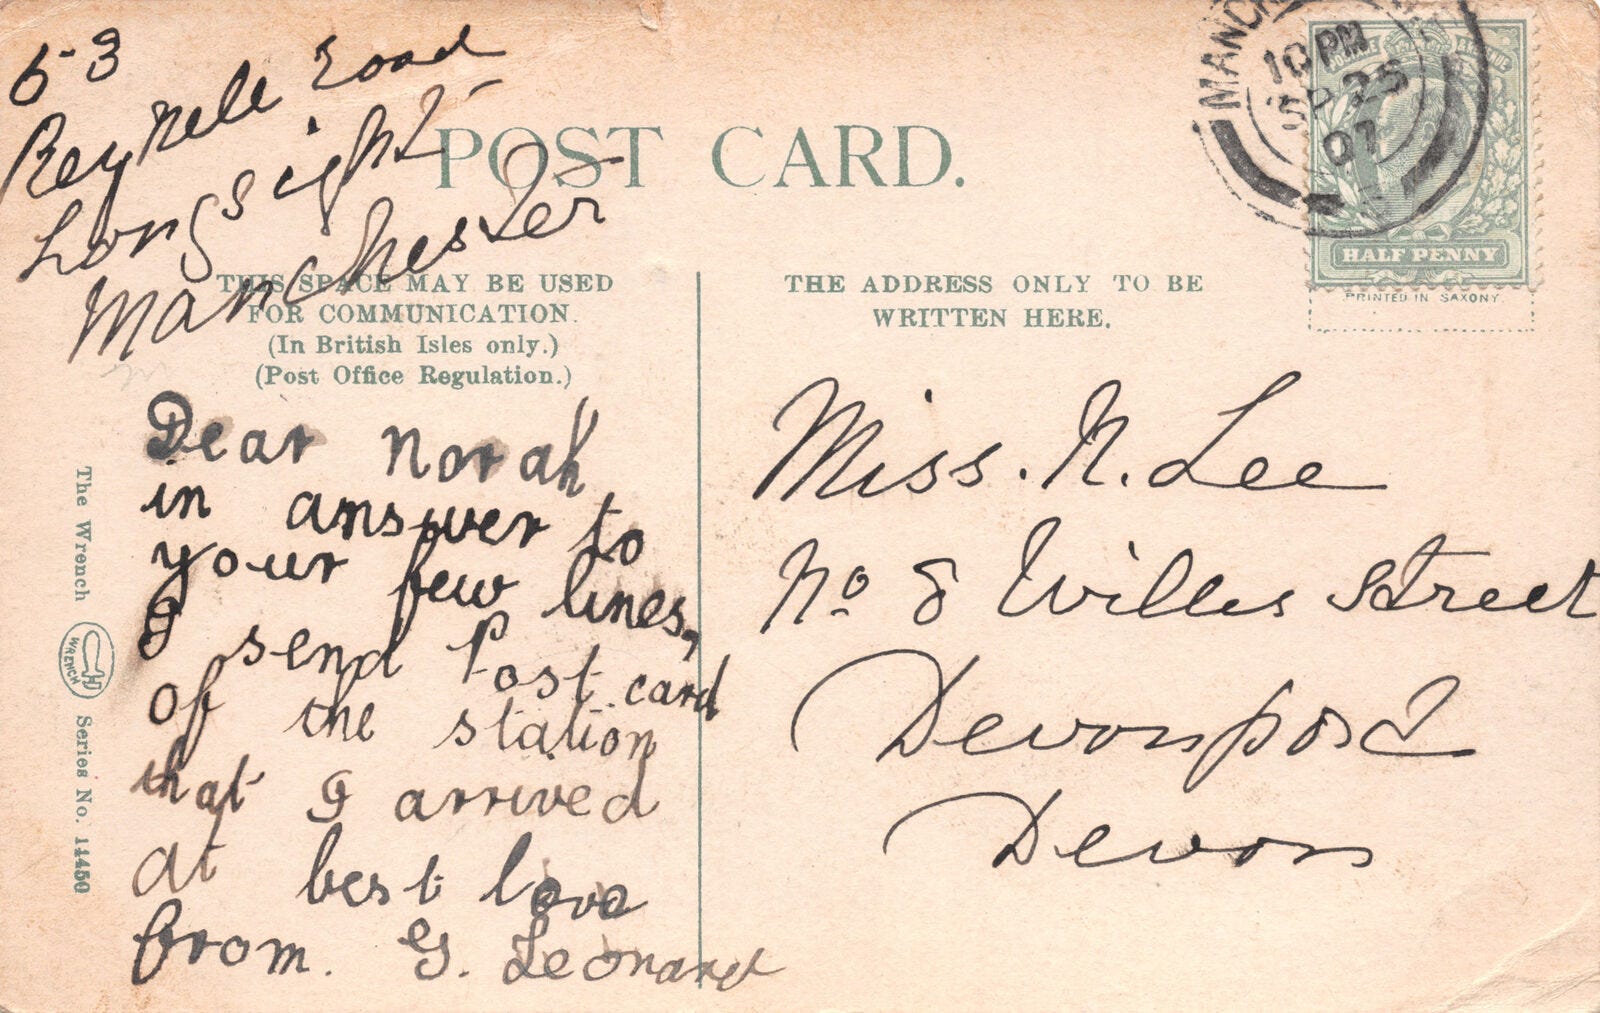 53
Reynell Road
Longsight
Manchester
POST CARD.
THIS SPACE MAY BE USED
FOR COMMUNICATION.
(In British Isles only.)
(Post Office Regulation.)
THE ADDRESS ONLY TO BE
WRITTEN HERE.
10 PM
25
07
POSTAGE REVENUE
HALF PENNY
PRINTED IN SAXONY.
Dear Norah
in answer to
your few lines,
I send Post card
of the station
that I arrived
at best love
from. G. Leonard
Miss. N. Lee
No 8 Willes Street
Devonport
Devon
The Wrench
WRENCH
Series No. 11450